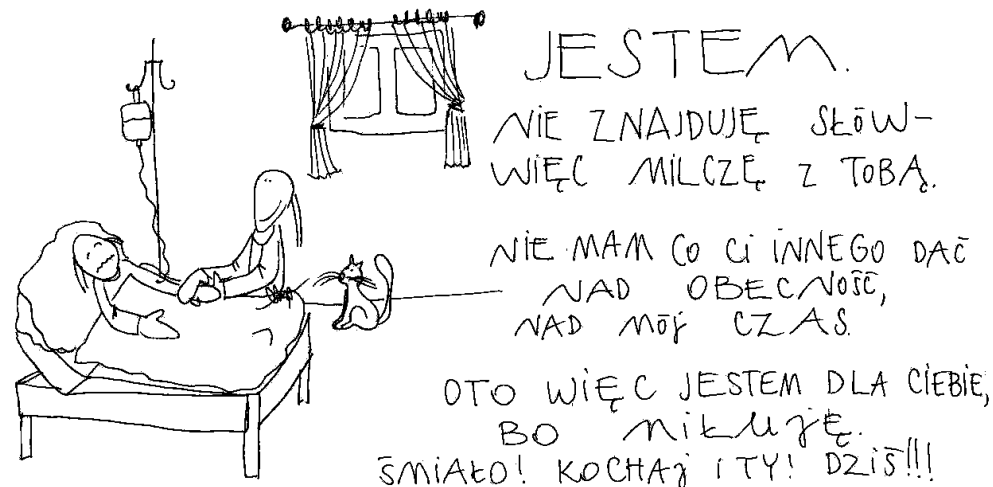 JESTEM.
NIE ZNAJDUJĘ SŁÓW-
WIĘC MILCZĘ Z TOBĄ.
NIE MAM CO CI INNEGO DAĆ
NAD OBECNOŚĆ,
NAD MÓJ CZAS.
OTO WIĘC JESTEM DLA CIEBIE,
BO MIŁUJĘ.
ŚMIAŁO! KOCHAJ I TY! DZIŚ!!!